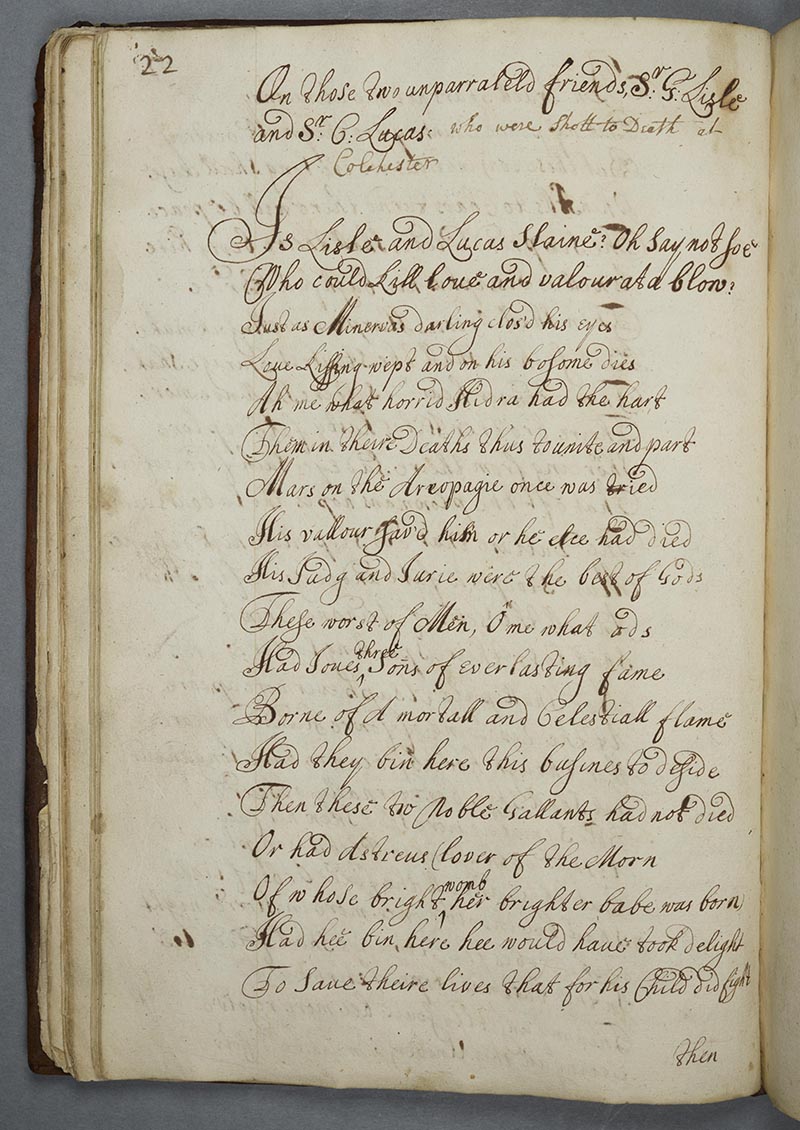 22
On those two unparraleld friends, Sr: G: Lisle
and Sr: C: Lucas: who were shott to Death at
Colchester
Is Lisle and Lucas Slaine? Oh say not soe
Who could kill love and valour at a blow?
Just as Minervas darling clos'd his eyes
Love kissing wept and on his bosome dies
Ah me what horrid Hidra had the hart
Them in theire Deaths thus to unite and part
Mars on the Areopagie once was tried
His vallour sav'd him or he elce had died
His Judg and Jurie were the best of Gods
These worst of Men, O me what ods
Had Joves three Sons of everlasting fame
Borne of A mortall and Celestiall flame
Had they bin here this busines to deside
Then these two Noble Gallants had not died
Or had Astreus (lover of the Morn
Of whose bright womb her brighter babe was born)
Had hee bin here hee would have took delight
To save theire lives that for his Child did fight
then